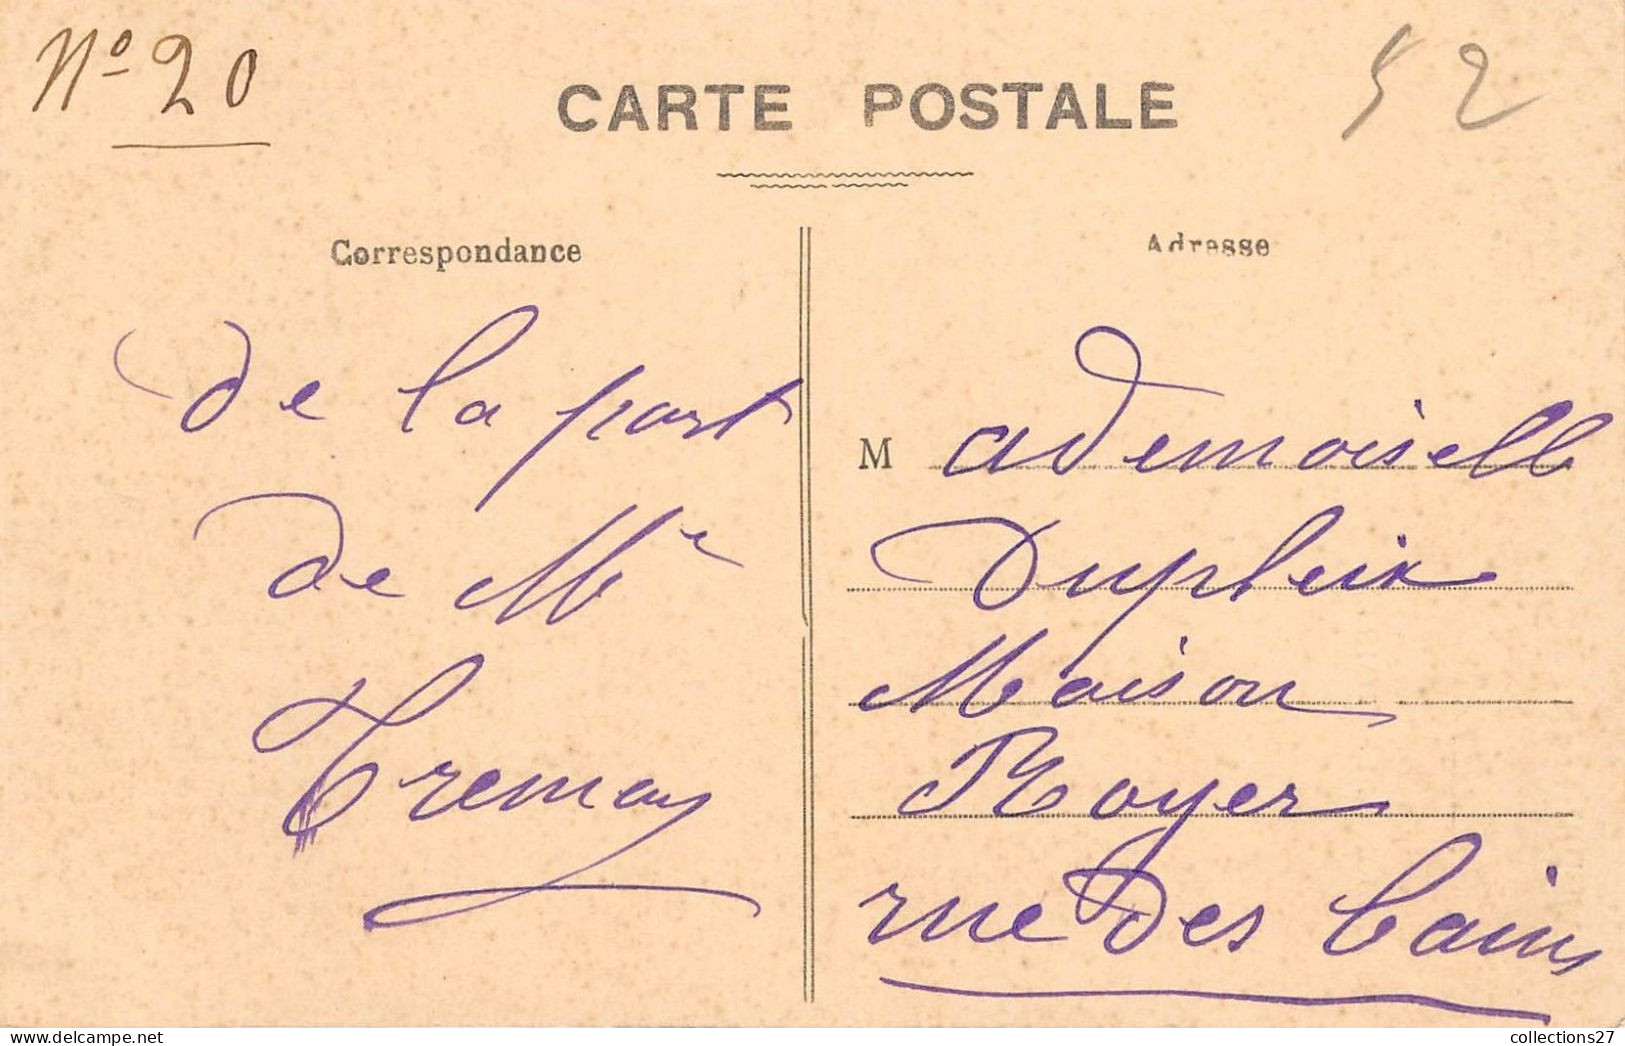 Nº 20
52
CARTE POSTALE
Correspondance
de la part
de Mr
Tremay
Adresse
Mademoiselle
Dupleix
Maison
Royer
rue des bains
collections27